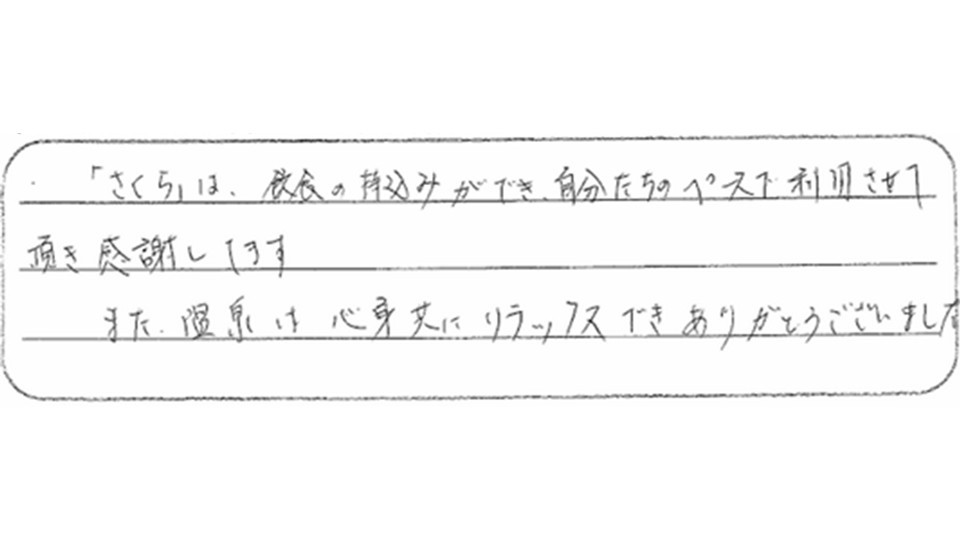 「さくら」は、飲食の持込みができ、自分たちのペースで利用させて
頂き感謝してます
また、温泉は心身共にリラックスできありがとうございました